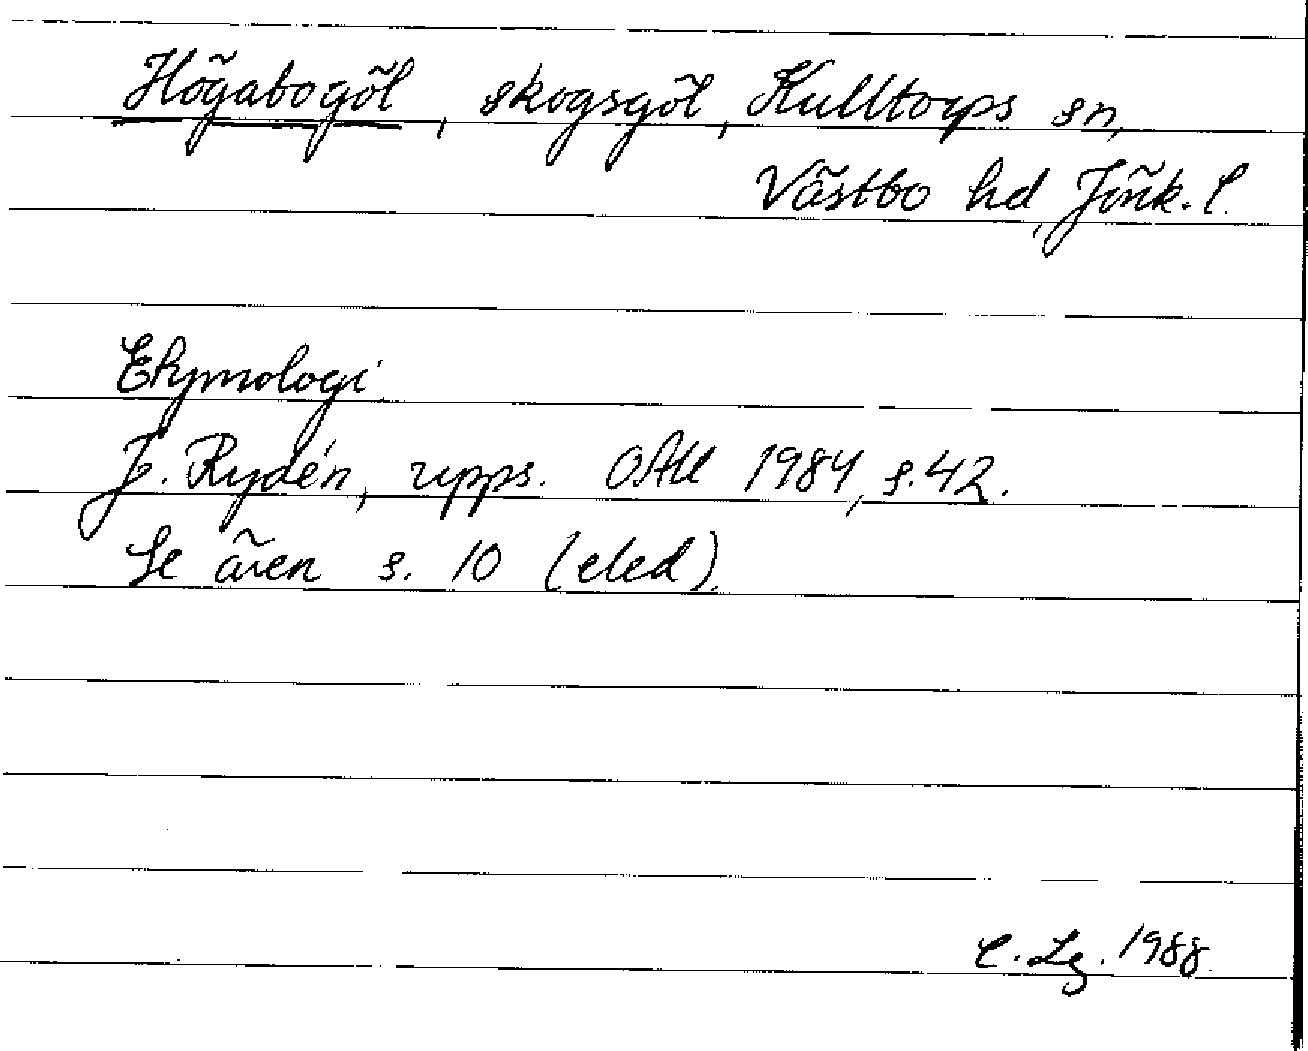 Högabogöl, skogsgöl, Kulltorps sn,
Västbo hd, Jönk. l.
Etymologi
J. Rydén, upps. OAU 1984, s. 42.
Se även s. 10 (eled).
C. Lg. 1988